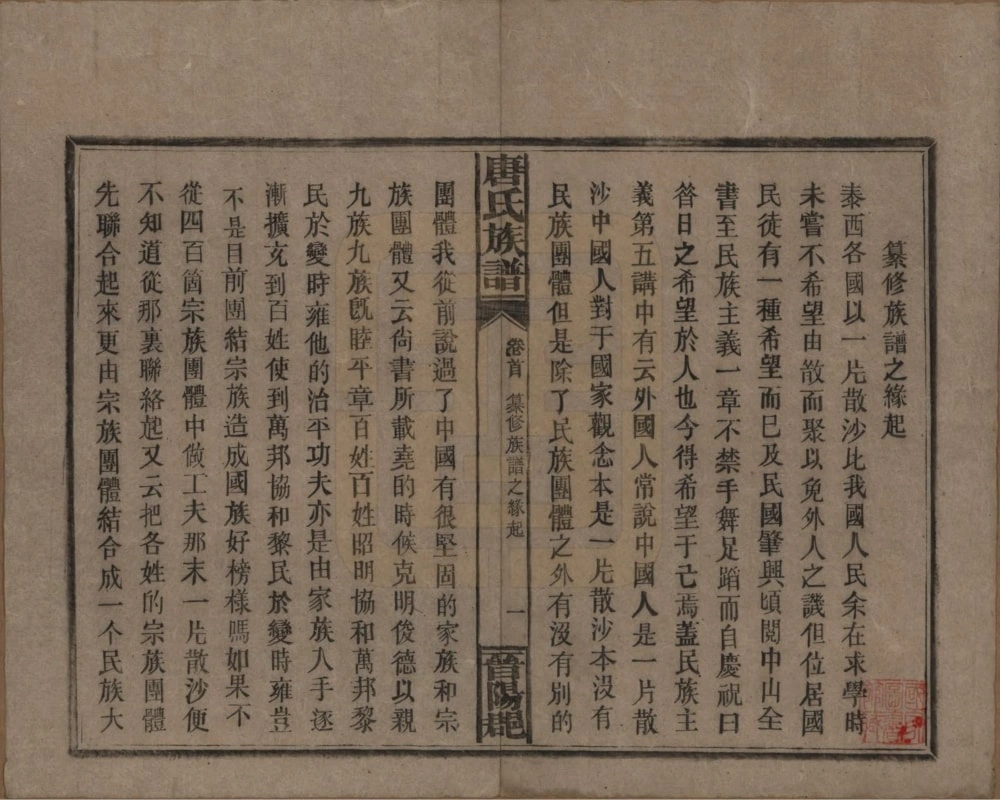 纂修族譜之緣起
泰西各國以一片散沙比我國人民余在求學時
未嘗不希望由散而聚以免外人之譏但位居國
民徒有一種希望而已及民國肇興頃閱中山全
書至民族主義一章不禁手舞足蹈而自慶祝曰
昝日之希望於人也今得希望于己焉蓋民族主
義第五講中有云外國人常說中國人是一片散
沙中國人對于國家觀念本是一片散沙本沒有
民族團體但是除了民族團體之外有沒有別的
唐氏族譜
卷首
纂修族譜之緣起
一
晉陽邑
團體我從前說過了中國有很堅固的家族和宗
族團體又云尙書所載堯的時候克明俊德以親
九族九族既睦平章百姓百姓昭明協和萬邦黎
民於變時雍他的治平功夫亦是由家族入手逐
漸擴充到百姓使到萬邦協和黎民於變時雍豈
不是目前團結宗族造成國族好榜樣嗎如果不
從四百箇宗族團體中做工夫那末一片散沙便
不知道從那裏聯絡起又云把各姓的宗族團體
先聯合起來更由宗族團體結合成一个民族大